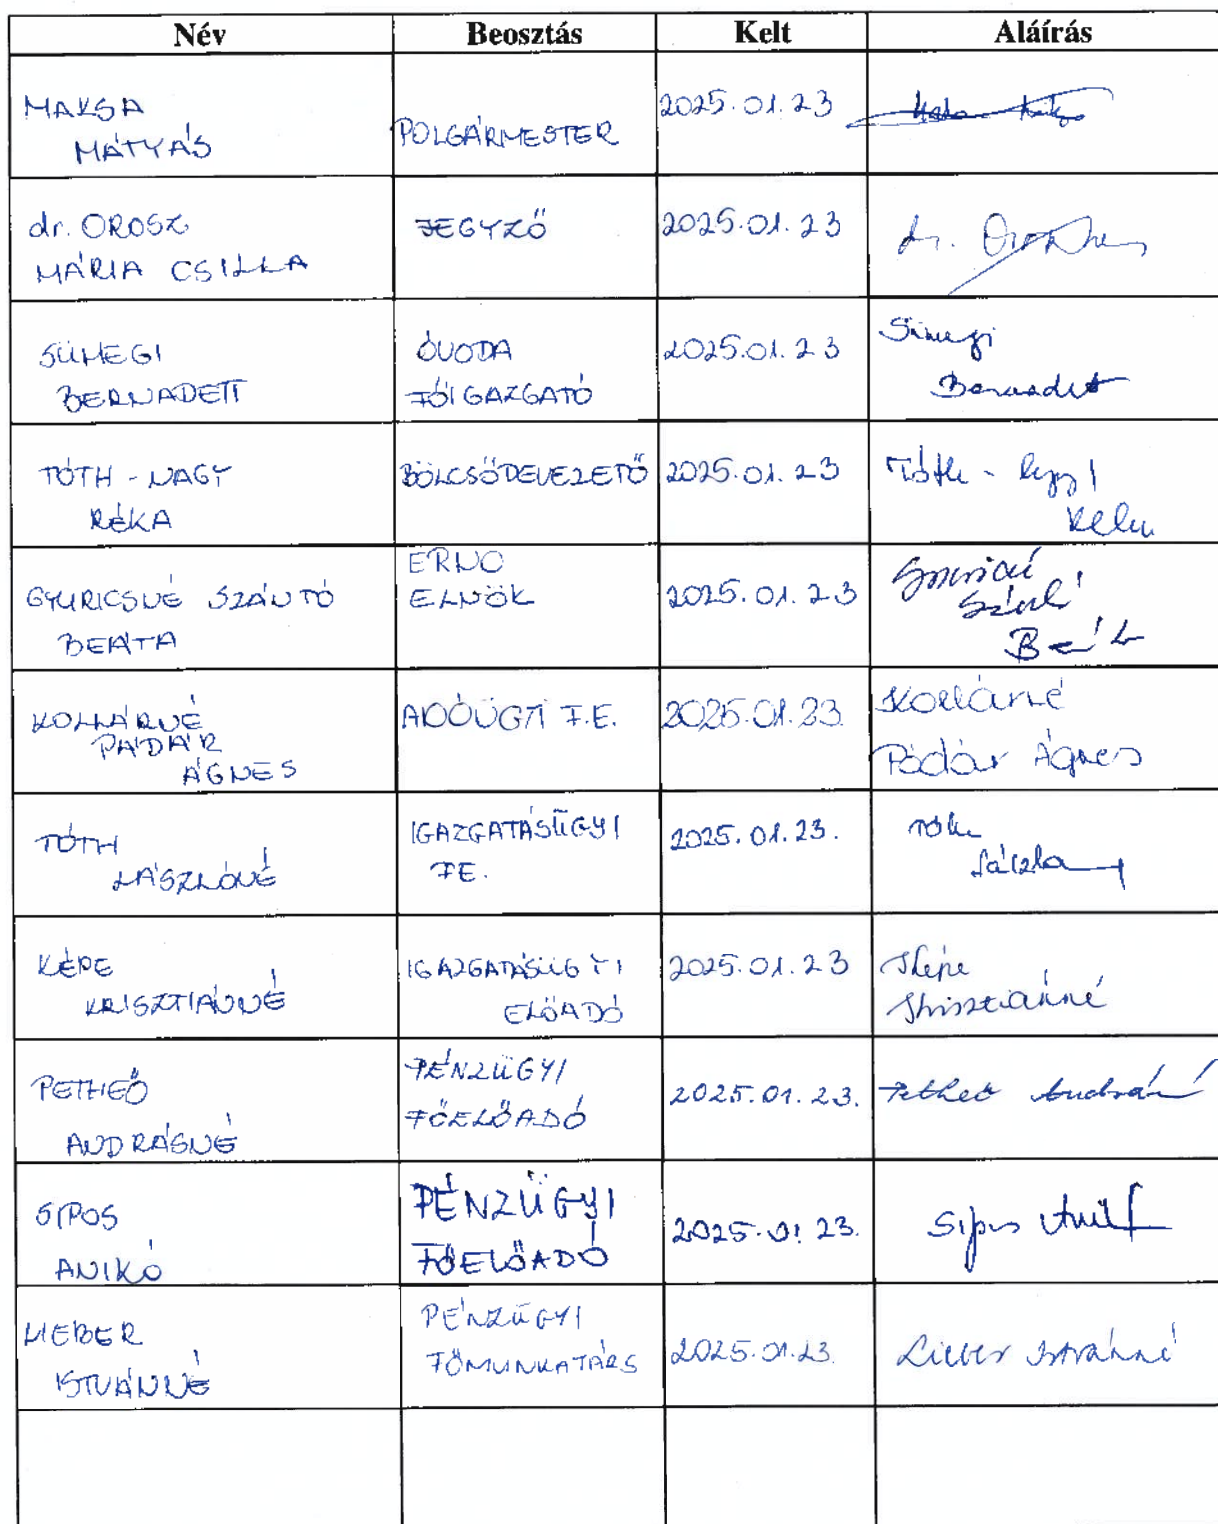 Név Beosztás Kelt Aláírás
MAKSA
MÁTYÁS
POLGÁRMESTER
2025.01.23
dr. OROSZ
MÁRIA CSILLA
JEGYZŐ
2025.01.23
dr. Orosz
SÜMEGI
BERNADETT
ÓVODA
FŐIGAZGATÓ
2025.01.23
Sümegi
Bernadett
TÓTH - NAGY
RÉKA
BÖLCSŐDEVEZETŐ
2025.01.23
Tóth - Nagy
Réka
GYURICSNÉ SZÁNTÓ
BEÁTA
ERNO
ELNÖK
2025.01.23
Gyuricsné
Szántó
Beáta
KOLLÁRNÉ
PÁDÁR
ÁGNES
ADÓÜGYI F.E.
2025.01.23.
Kollárné
Pádár Ágnes
TÓTH
LÁSZLÓNÉ
IGAZGATÁSÜGYI
FE.
2025.01.23.
Tóth
Lászlóné
KÉPE
KRISZTIÁNNÉ
IGAZGATÁSÜGYI
ELŐADÓ
2025.01.23
Képe
Krisztiánné
PETHEŐ
ANDRÁSNÉ
PÉNZÜGYI
FŐELŐADÓ
2025.01.23.
Petheő Andrásné
SIPOS
ANIKÓ
PÉNZÜGYI
FŐELŐADÓ
2025.01.23.
Sipos Anikó
LIEBER
ISTVÁNNÉ
PÉNZÜGYI
FŐMUNKATÁRS
2025.01.23.
Lieber Istvánné